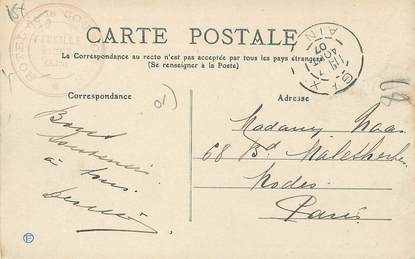 CARTE POSTALE
La Correspondance au recto n'est pas acceptée par tous les pays étrangers
(Se renseigner à la Poste)
Correspondance
Adresse
HOTEL DE
AIN
GEX
07
Bons
souvenirs
à tous
Madame Haas
68 Bd Malesherbes
Modes
Paris